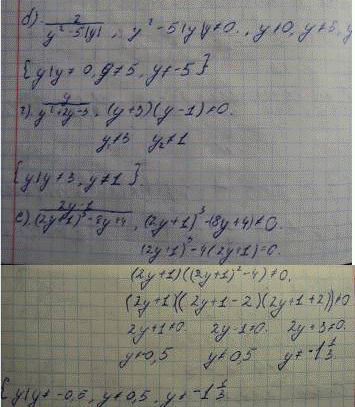 б). 2 / y² - 5|y| , y² - 5|y| ≠ 0. , y ≠ 0, y ≠ 5, y
{y|y ≠ 0, y ≠ 5, y ≠ -5}
г). y / y² + 2y - 3 , (y + 3)(y - 1) ≠ 0.
y₁ ≠ 3 y₂ ≠ 1
{y|y ≠ 3, y ≠ 1}.
е). 2y - 1 / (2y + 1)³ - 8y + 4 , (2y + 1)³ - (8y + 4) ≠ 0.
(2y + 1)³ - 4(2y + 1) = 0.
(2y + 1)((2y + 1)² - 4) ≠ 0.
(2y + 1)((2y + 1 - 2)(2y + 1 + 2)) ≠ 0
2y + 1 ≠ 0. 2y - 1 ≠ 0. 2y + 3 ≠ 0.
y ≠ 0,5 y ≠ 0,5 y ≠ -1 1/3
{y|y ≠ -0,5, y ≠ 0,5, y ≠ -1 1/3